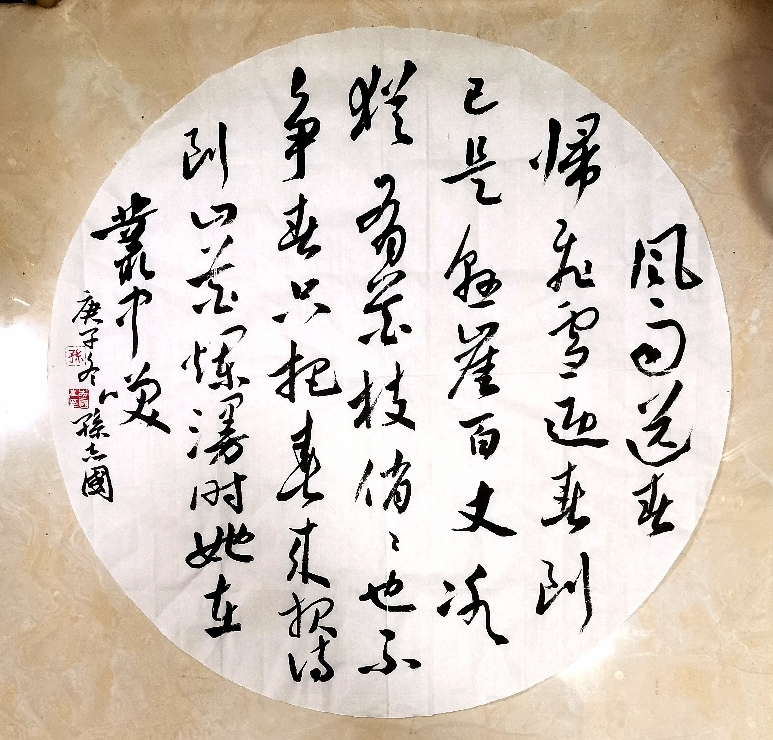 風雨送春
帰飛雪迎春到
已是懸崖百丈冰
犹有花枝俏〻也不
争春只把春来报待
到山花爛漫时她在
叢中笑
庚子冬
孫志國
孫